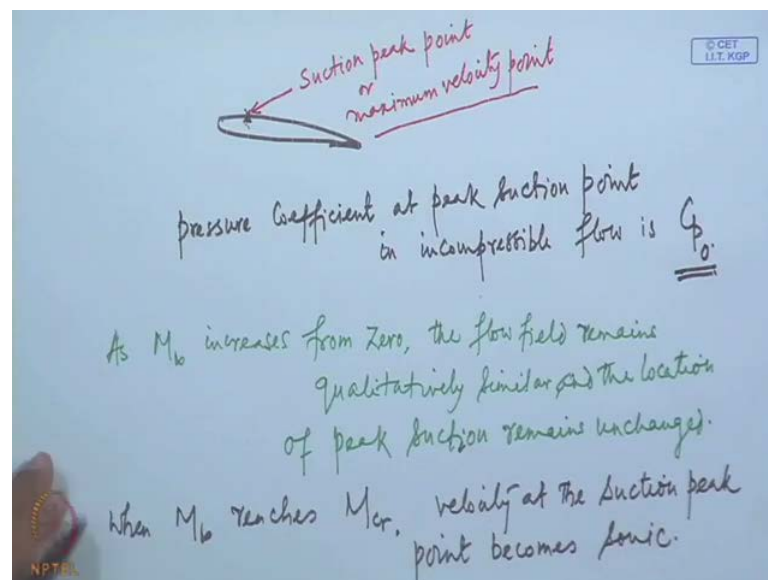 © CET
I.I.T. KGP
Suction peak point
or
maximum velocity point
pressure Coefficient at peak suction point
in incompressible flow is Cp₀.
As M∞ increases from Zero, the flow field remains
qualitatively similar and the location
of peak suction remains unchanged.
When M∞ reaches Mcr, velocity at the suction peak
point becomes sonic.
NPTEL